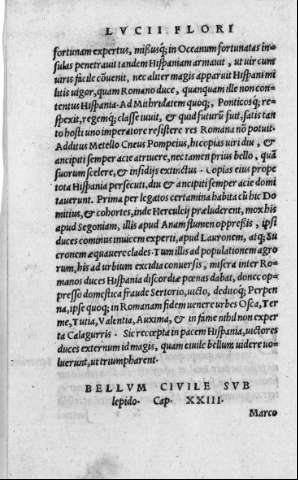 LVCII FLORI
fortunam expertus, missusq; in Oceanum fortunatas in-
sulas penetrauit tandem Hispaniam armauit, ut uir cum
uiris facile cōuenit, nec aliter magis apparuit Hispani mi
litis uigor, quam Romano duce, quanquam ille non con-
tentus Hispania. Ad Mithridatem quoq;, Ponticosq; re-
spexit, regemq; classe iuuit, & quid futurū fuit, satis tan
to hosti uno imperatore resistere res Romana nō potuit.
Additus Metello Cneus Pompeius, hi copias uiri diu, &
ancipiti semper acie attriuere, nec tamen prius bello, quā
suorum scelere, & insidijs extinctus. Copias eius prope
tota Hispania persecuti, diu & ancipiti semper acie domi
tauerunt. Prima per legatos certamina habita cū hic Do
mitius, & cohortes, inde Herculeij præluderent, mox his
apud Segoniam, illis apud Anam flumen oppressis, ipsi
duces cominus inuicem experti, apud Lauronem, atq; Su
cronem æquauere clades. Tum illis ad populationem agro
rum, his ad urbium excidia conuersis, misera inter Ro-
manos duces Hispania discordiæ pœnas dabat, donec op-
presso domestica fraude Sertorio, uicto, deditoq; Perpen
na, ipsæ quoq; in Romanam fidem uenere urbes Osca, Ter
me, Tutia, Valentia, Auxima, & in fame nihil non exper
ta Calagurris. Sic recepta in pacem Hispania, uictores
duces externum id magis, quam ciuile bellum uideri uo-
luerunt, ut triumpharent.
BELLVM CIVILE SVB
lepido. Cap. XXIII.
Marco